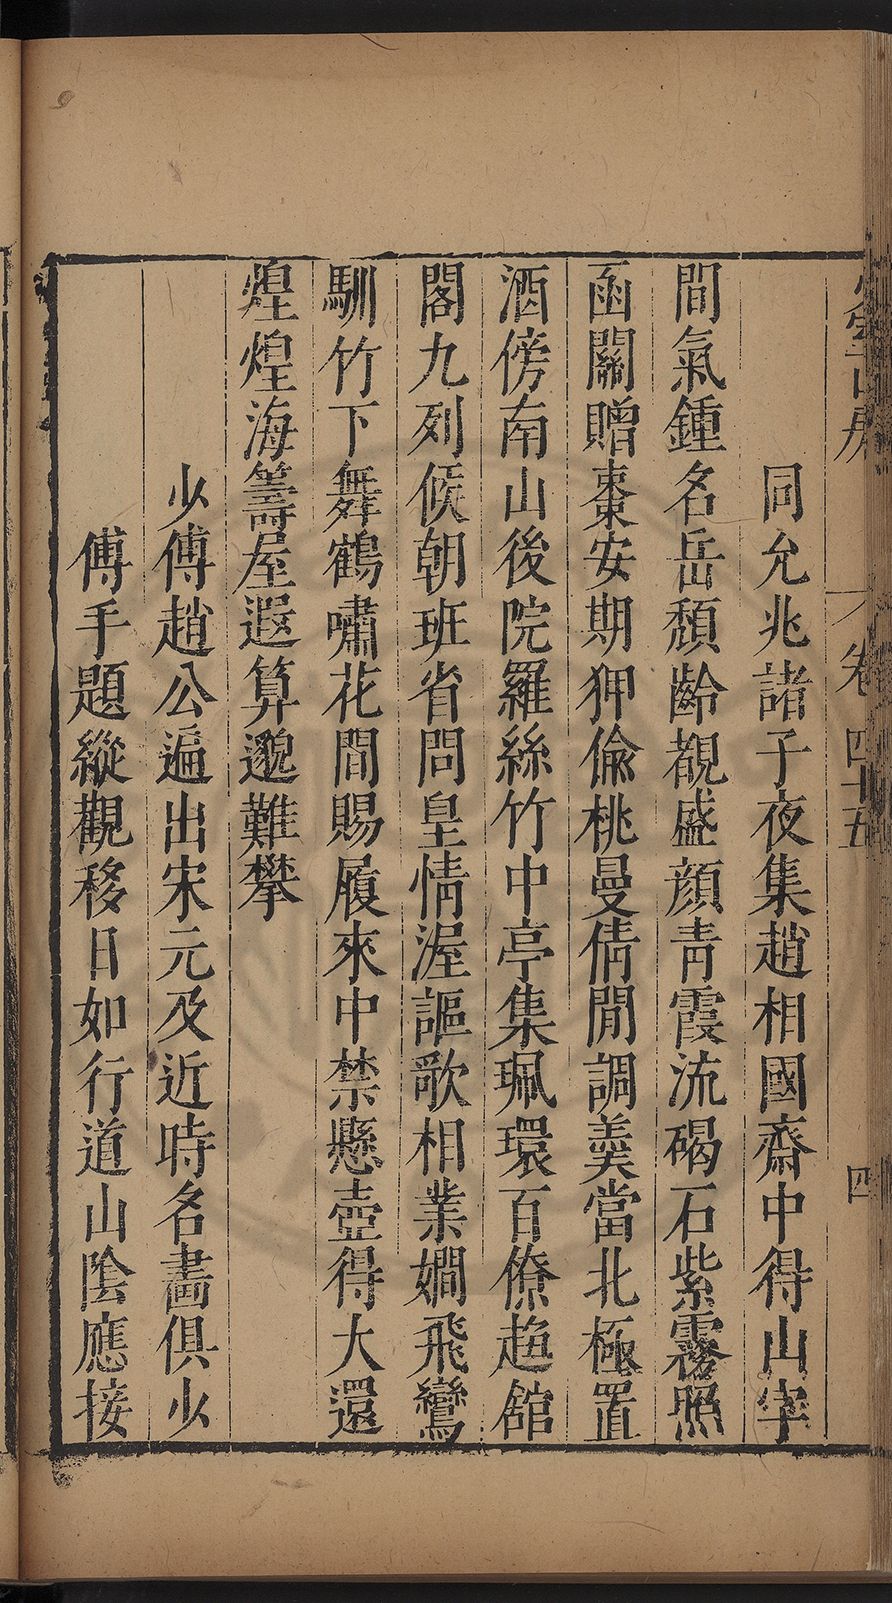 少室山房
卷四十五
四
同允兆諸子夜集趙相國齋中得山字
間氣鍾名岳頹齡覩盛顔靑霞流碣石紫霧照
函關贈棗安期狎偸桃曼倩閒調羹當北極置
酒傍南山後院羅絲竹中亭集珮環百僚趋舘
閣九列候朝班省問皇情渥謳歌相業嫺飛鸞
馴竹下舞鶴嘯花間賜履來中禁懸壺得大還
煌煌海籌屋遐算邈難攀
少傅趙公遍出宋元及近時名畵俱少
傅手題縱觀移日如行道山陰應接